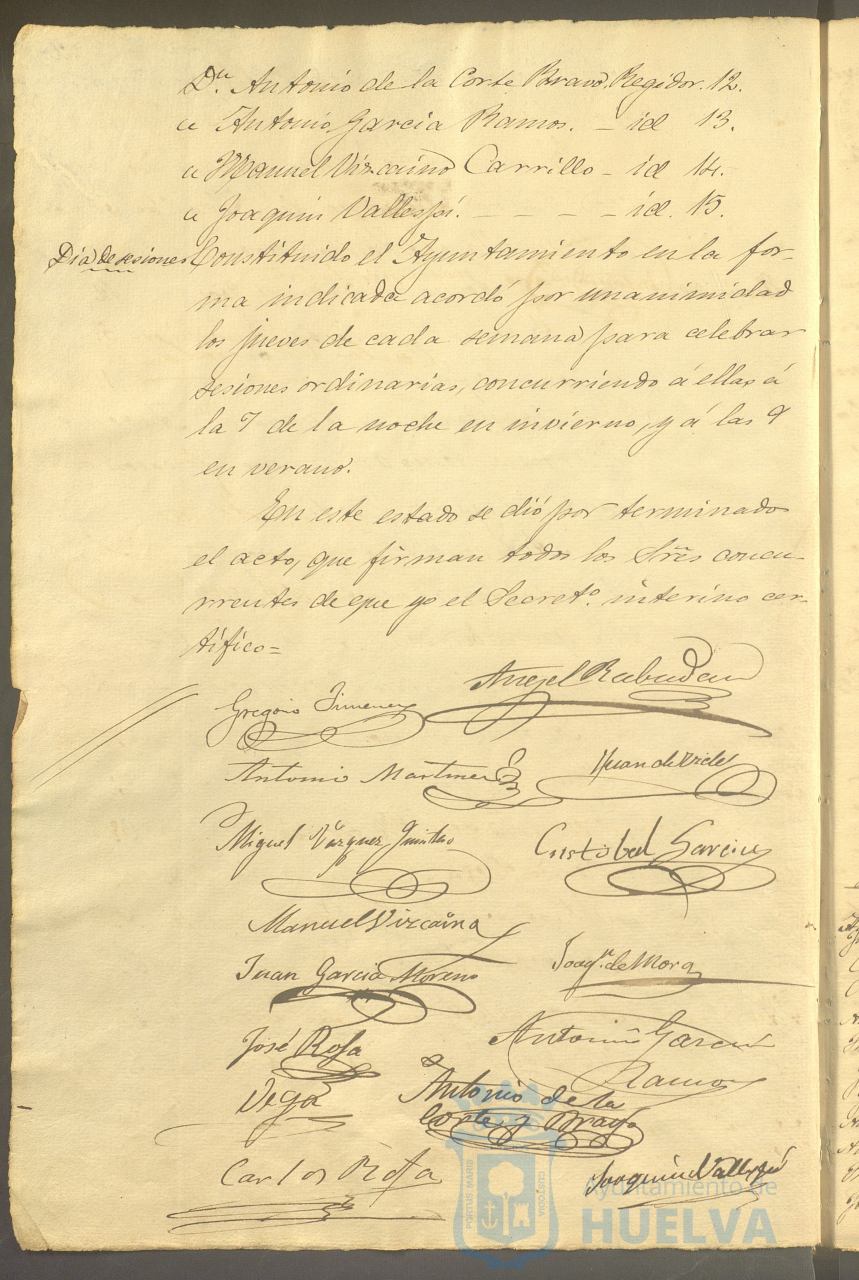 Dn. Antonio de la Corte Bravo, Regidor. 12.
" Antonio Garcia Ramos. — id 13.
" Manuel Vizcaino Carrillo — id 14.
" Joaquin Vallespí. — — — — id. 15.
Dia de sesiones
Constituido el Ayuntamiento en la for-
ma indicada acordó por unanimidad
los jueves de cada semana para celebrar
sesiones ordinarias, concurriendo á ellas á
la 7 de la noche en invierno, y á las 9
en verano.
En este estado se dió por terminado
el acto, que firman todos los Sres concu-
rrentes de que yo el Secreto. interino cer-
tifico=
Angel Rabadan
Gregorio Jimenez
Antonio Martinez
Juan de Vides
Miguel Vázquez
Cristobal Garcia
Manuel Vizcaino
Juan Garcia Moreno
Joaqn. de Mora
José Rosa
Vega
Antonio Garcia
Ramos
Antonio de la
Corte y Bravo
Carlos Rosa
Joaquin Vallespí
PORTUS MARIS
CUSTODIA
Ayuntamiento de
HUELVA